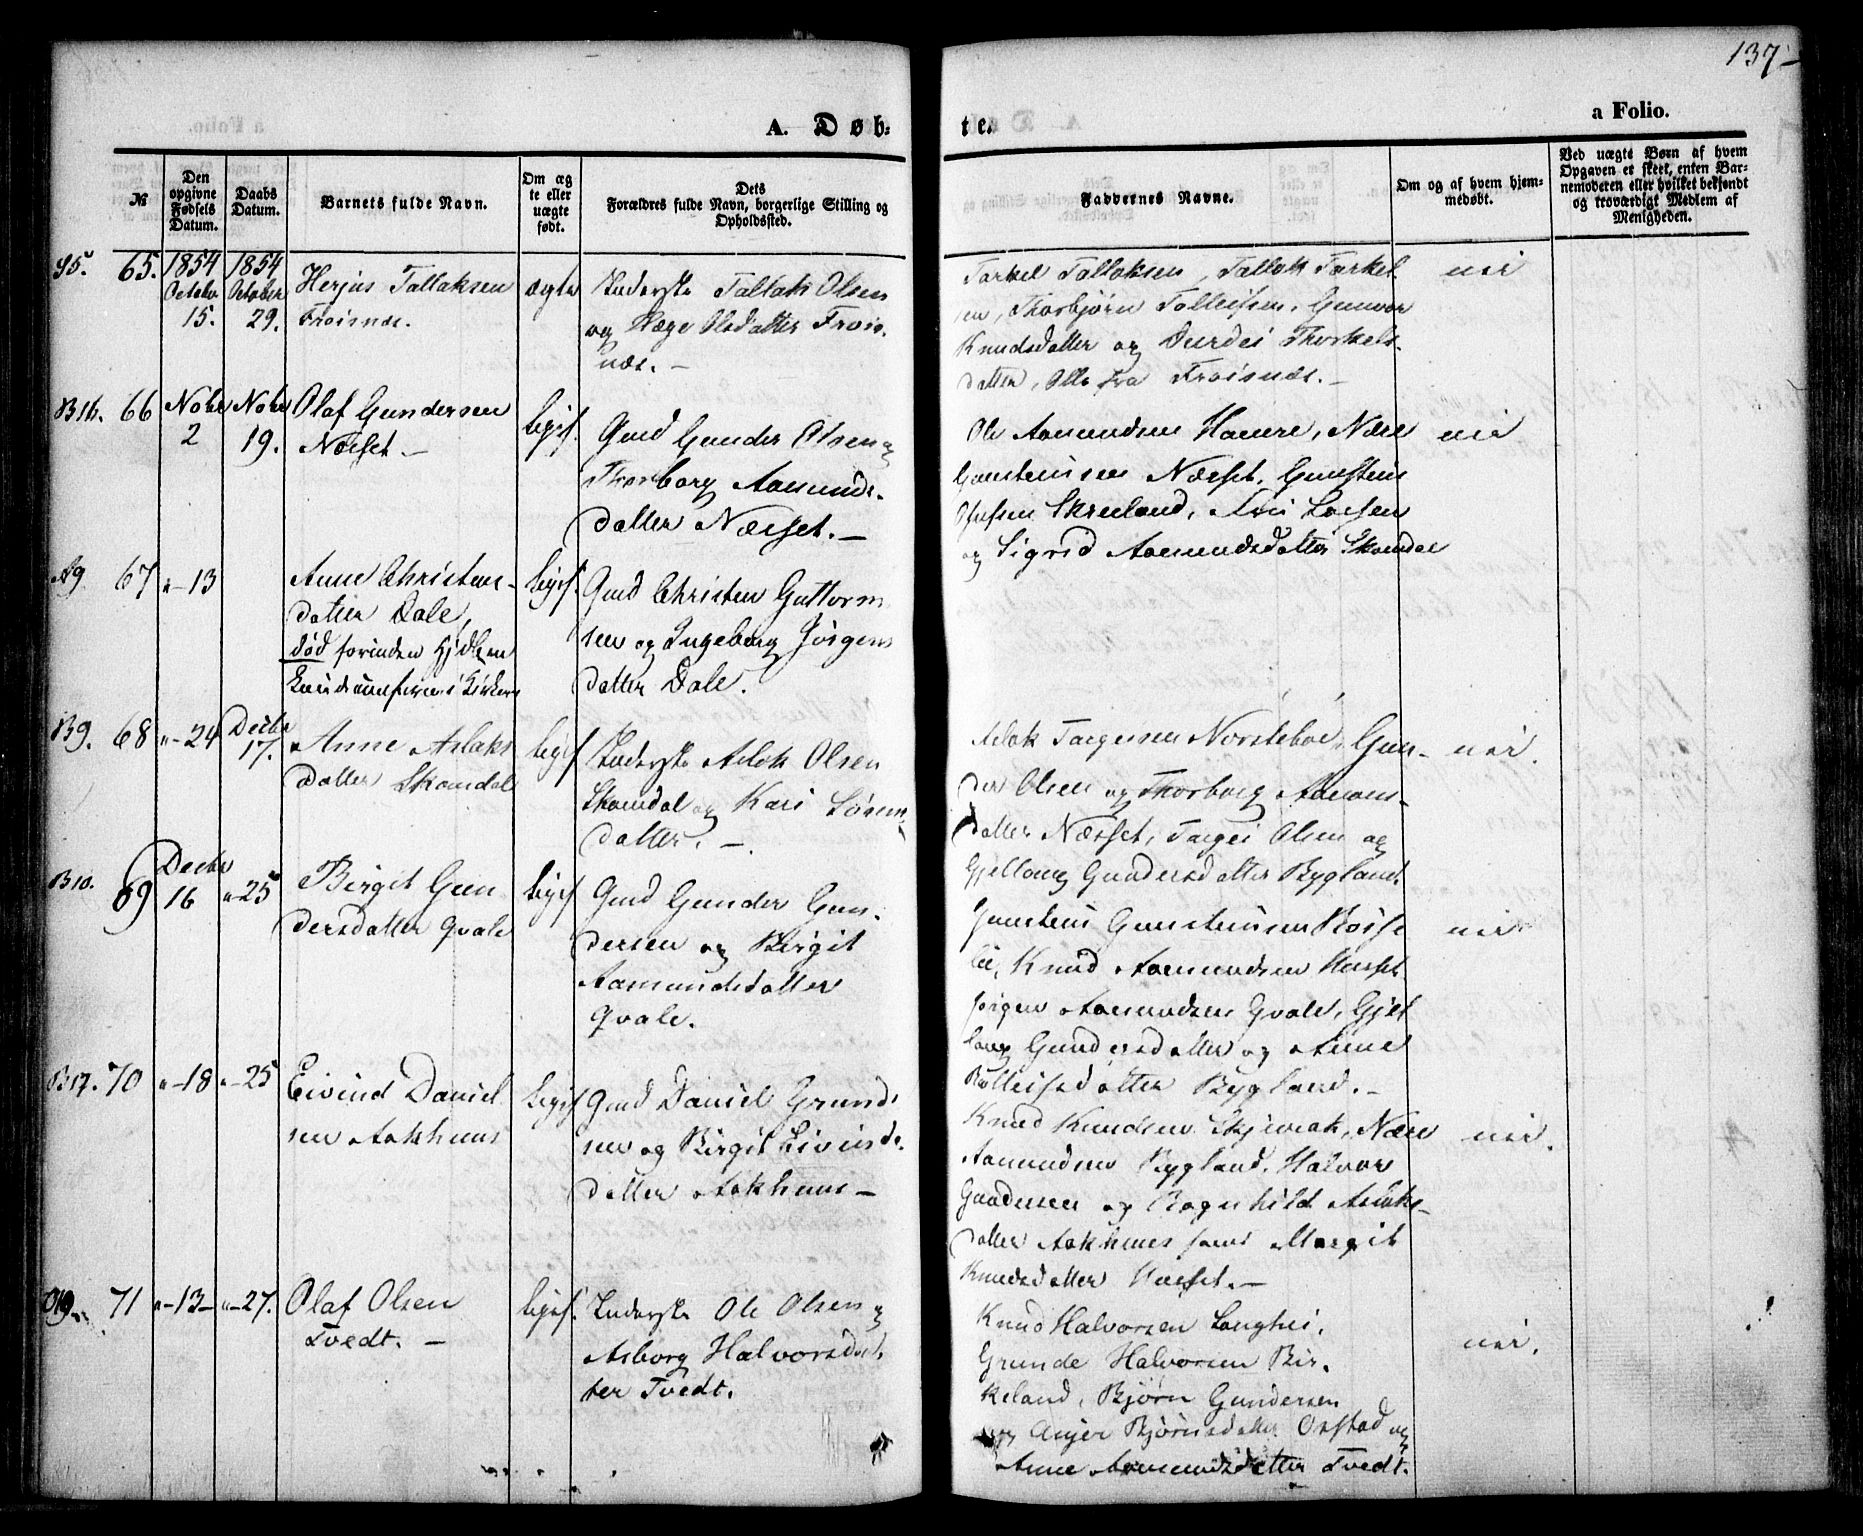 137
A. Døb-
te.
a Folio.
№
Den opgivne Fødsels Datum.
Daabs Datum.
Barnets fulde Navn.
Om ægte eller uægte født.
Dets Forældres fulde Navn, borgerlige Stilling og Opholdssted.
Faddernes Navne.
Om og af hvem hjemmedøbt.
Ved uægte Børn af hvem Opgaven er skeet, enten Barnemoderen eller hvilket bekjendt og troværdigt Medlem af Menigheden.
65. 1854 October 15. 1854 October 29.
Herjus Tallaksen
Froisnæs.
ægte
Inderste Tallak Olsen
og Hæge Olsdatter Frois-
næs. –
Tarkel Tallaksen, Tallak Tarkel
sen, Thorbjørn Tolleifsen, Gunvor
Knudsdatter og Durdei Thorkels-
datter, Alle fra Froisnæs. –
nei
B16. 66 Nobr 2 Nobr 19.
Olaf Gundersen
Næsset –
legif.
Gmd Gunder Olsen og
Thorborg Aamunds-
datter Næsset. –
Ole Aamundsen Hamre, Næse
Gunsteinsen Næsset, Gunstein
Olufsen Skreeland,
og Sigrid Aamundsdatter Skamdal
nei
A9 67 "–13
Anne Christens-
datter Dale,
død forinden Hjdben
legif.
Gmd Christen Guttorm
sen og Ingeborg Jørgens
datter Dale.
B9. 68 "–24 Decbr 17.
Anne Aslaks
datter Skamdal
legif
Inderste Aslak Olsen
Skamdal og Kari Sørens
datter. –
Aslak Targesen Nordebøe, Gun-
der Olsen og Thorborg Aamunds-
datter Næsset, Targei Olsen og
Gjellaug Gundersdatter Bygland.
nei.
B10. 69 Decbr 16 "–25
Birgit Gun
dersdatter Qvale
legif
Gmd Gunder Gun-
dersen og Birgit
Aamundsdatter
Qvale.
Gunstein Gunsteinsen
lie, Knud Aamundsen
Jørgen Aamundsen Qvale, Gjel
laug Gundersdatter og Anne
datter Bygland. –
nei
B17. 70 "–18 "–25
Eivind Daniel
sen Aakhuus
legif
Gmd Daniel Grund-
sen og Birgit Eivinds-
datter Aakhuus –
Knud Knudsen Næse
Aamundsen Bygland, Halvor
Gundersen og Ragnhild Aslaks-
datter Aakhuus samt Margit
Knudsdatter
nei.
O19. 71 "–13– "–27.
Olaf Olsen
Tvedt. –
legif.
Inderste Ole Olsen og
Asborg Halvorsdat-
ter Tvedt.
Knud Halvorsen Langhei,
Grunde Halvorsen Bir-
keland, Bjørn Gundersen
Bjørnsdatter Ostad og
Anne Aamundsdatter Tvedt.
nei.